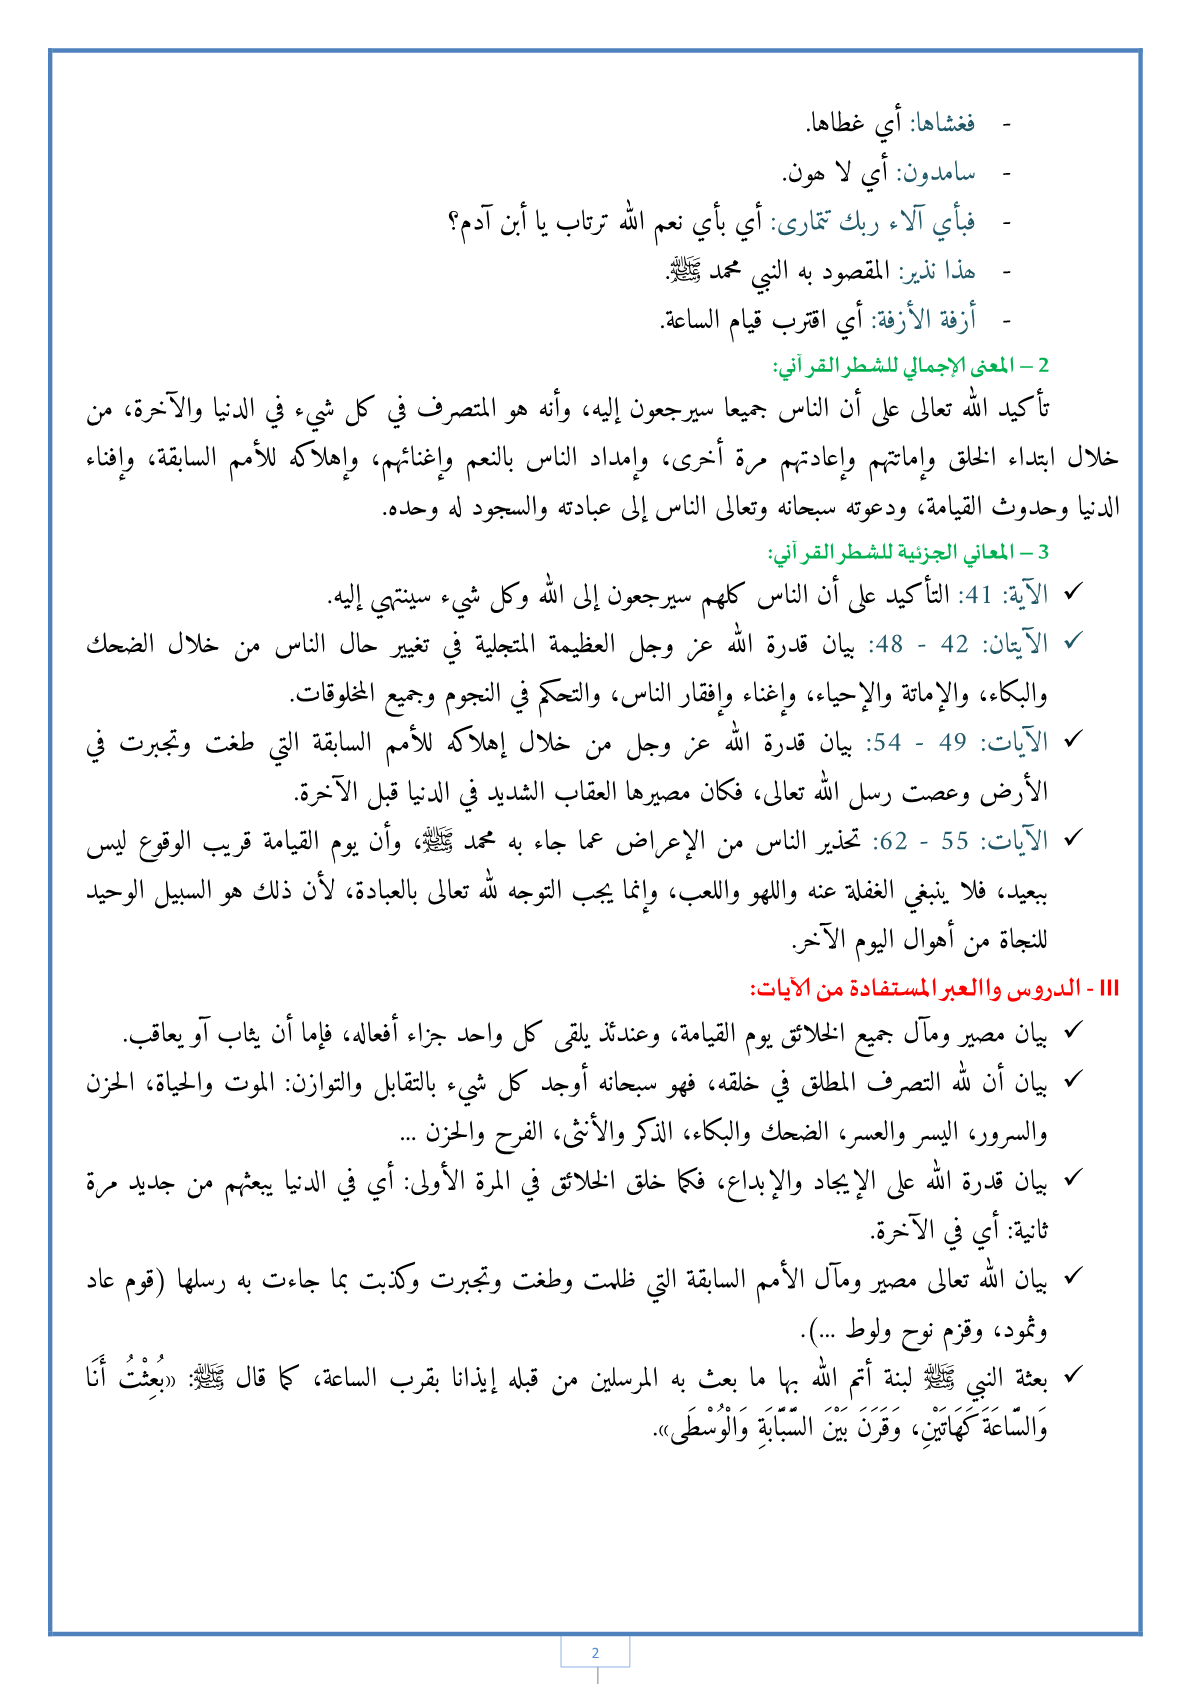 - فغشاها: أي غطاها.
- سامدون: أي لا هون.
- فبأي آلاء ربك تتمارى: أي بأي نعم الله ترتاب يا أبن آدم؟
- هذا نذير: المقصود به النبي محمد ﷺ.
- أزفة الأزفة: أي اقترب قيام الساعة.
2 – المعنى الإجمالي للشطر القرآني:
تأكيد الله تعالى على أن الناس جميعا سيرجعون إليه، وأنه هو المتصرف في كل شيء في الدنيا والآخرة، من
خلال ابتداء الخلق وإماتتهم وإعادتهم مرة أخرى، وإمداد الناس بالنعم وإغنائهم، وإهلاكه للأمم السابقة، وإفناء
الدنيا وحدوث القيامة، ودعوته سبحانه وتعالى الناس إلى عبادته والسجود له وحده.
3 – المعاني الجزئية للشطر القرآني:
✓ الآية: 41: التأكيد على أن الناس كلهم سيرجعون إلى الله وكل شيء سينتهي إليه.
✓ الآيتان: 42 - 48: بيان قدرة الله عز وجل العظيمة المتجلية في تغيير حال الناس من خلال الضحك
والبكاء، والإماتة والإحياء، وإغناء وإفقار الناس، والتحكم في النجوم وجميع المخلوقات.
✓ الآيات: 49 - 54: بيان قدرة الله عز وجل من خلال إهلاكه للأمم السابقة التي طغت وتجبرت في
الأرض وعصت رسل الله تعالى، فكان مصيرها العقاب الشديد في الدنيا قبل الآخرة.
✓ الآيات: 55 - 62: تحذير الناس من الإعراض عما جاء به محمد ﷺ، وأن يوم القيامة قريب الوقوع ليس
ببعيد، فلا ينبغي الغفلة عنه واللهو واللعب، وإنما يجب التوجه لله تعالى بالعبادة، لأن ذلك هو السبيل الوحيد
للنجاة من أهوال اليوم الآخر.
III - الدروس واالعبر المستفادة من الآيات:
✓ بيان مصير ومآل جميع الخلائق يوم القيامة، وعندئذ يلقى كل واحد جزاء أفعاله، فإما أن يثاب آو يعاقب.
✓ بيان أن لله التصرف المطلق في خلقه، فهو سبحانه أوجد كل شيء بالتقابل والتوازن: الموت والحياة، الحزن
والسرور، اليسر والعسر، الضحك والبكاء، الذكر والأنثى، الفرح والحزن ...
✓ بيان قدرة الله على الإيجاد والإبداع، فكما خلق الخلائق في المرة الأولى: أي في الدنيا يبعثهم من جديد مرة
ثانية: أي في الآخرة.
✓ بيان الله تعالى مصير ومآل الأمم السابقة التي ظلمت وطغت وتجبرت وكذبت بما جاءت به رسلها (قوم عاد
وثمود، وقزم نوح ولوط ...).
✓ بعثة النبي ﷺ لبنة أتم الله بها ما بعث به المرسلين من قبله إيذانا بقرب الساعة، كما قال ﷺ: «بُعِثْتُ أَنَا
وَالسَّاعَةَ كَهَاتَيْنِ، وَقَرَنَ بَيْنَ السَّبَّابَةِ وَالْوُسْطَى».
2